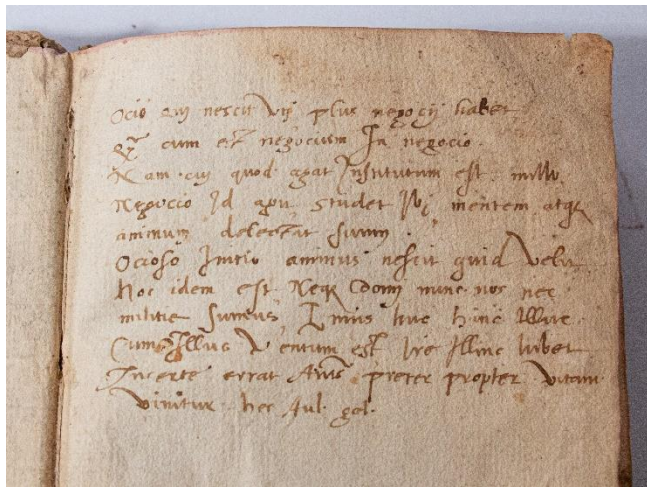 Ocio qui nescit Vti plus negocij habet
Qz cum est negocium In negocio.
Nam cuj quod agat Institutum est nullo
Negocio Id agit studet Ibi mentem atqz
animum delectat suum.
Ocioso Initio animus nescit quid Velit
hoc idem est Neqz domj nunc nos nec
militie sumus, Imus huc hinc Illuc.
Cum Illuc Ventum est Ire Illinc lubet
Incerte errat Aius preter propter vitam
viuitur hec Aul gel.